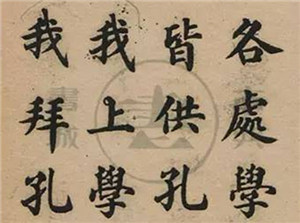 各處學
皆供孔
我上學
我拜孔